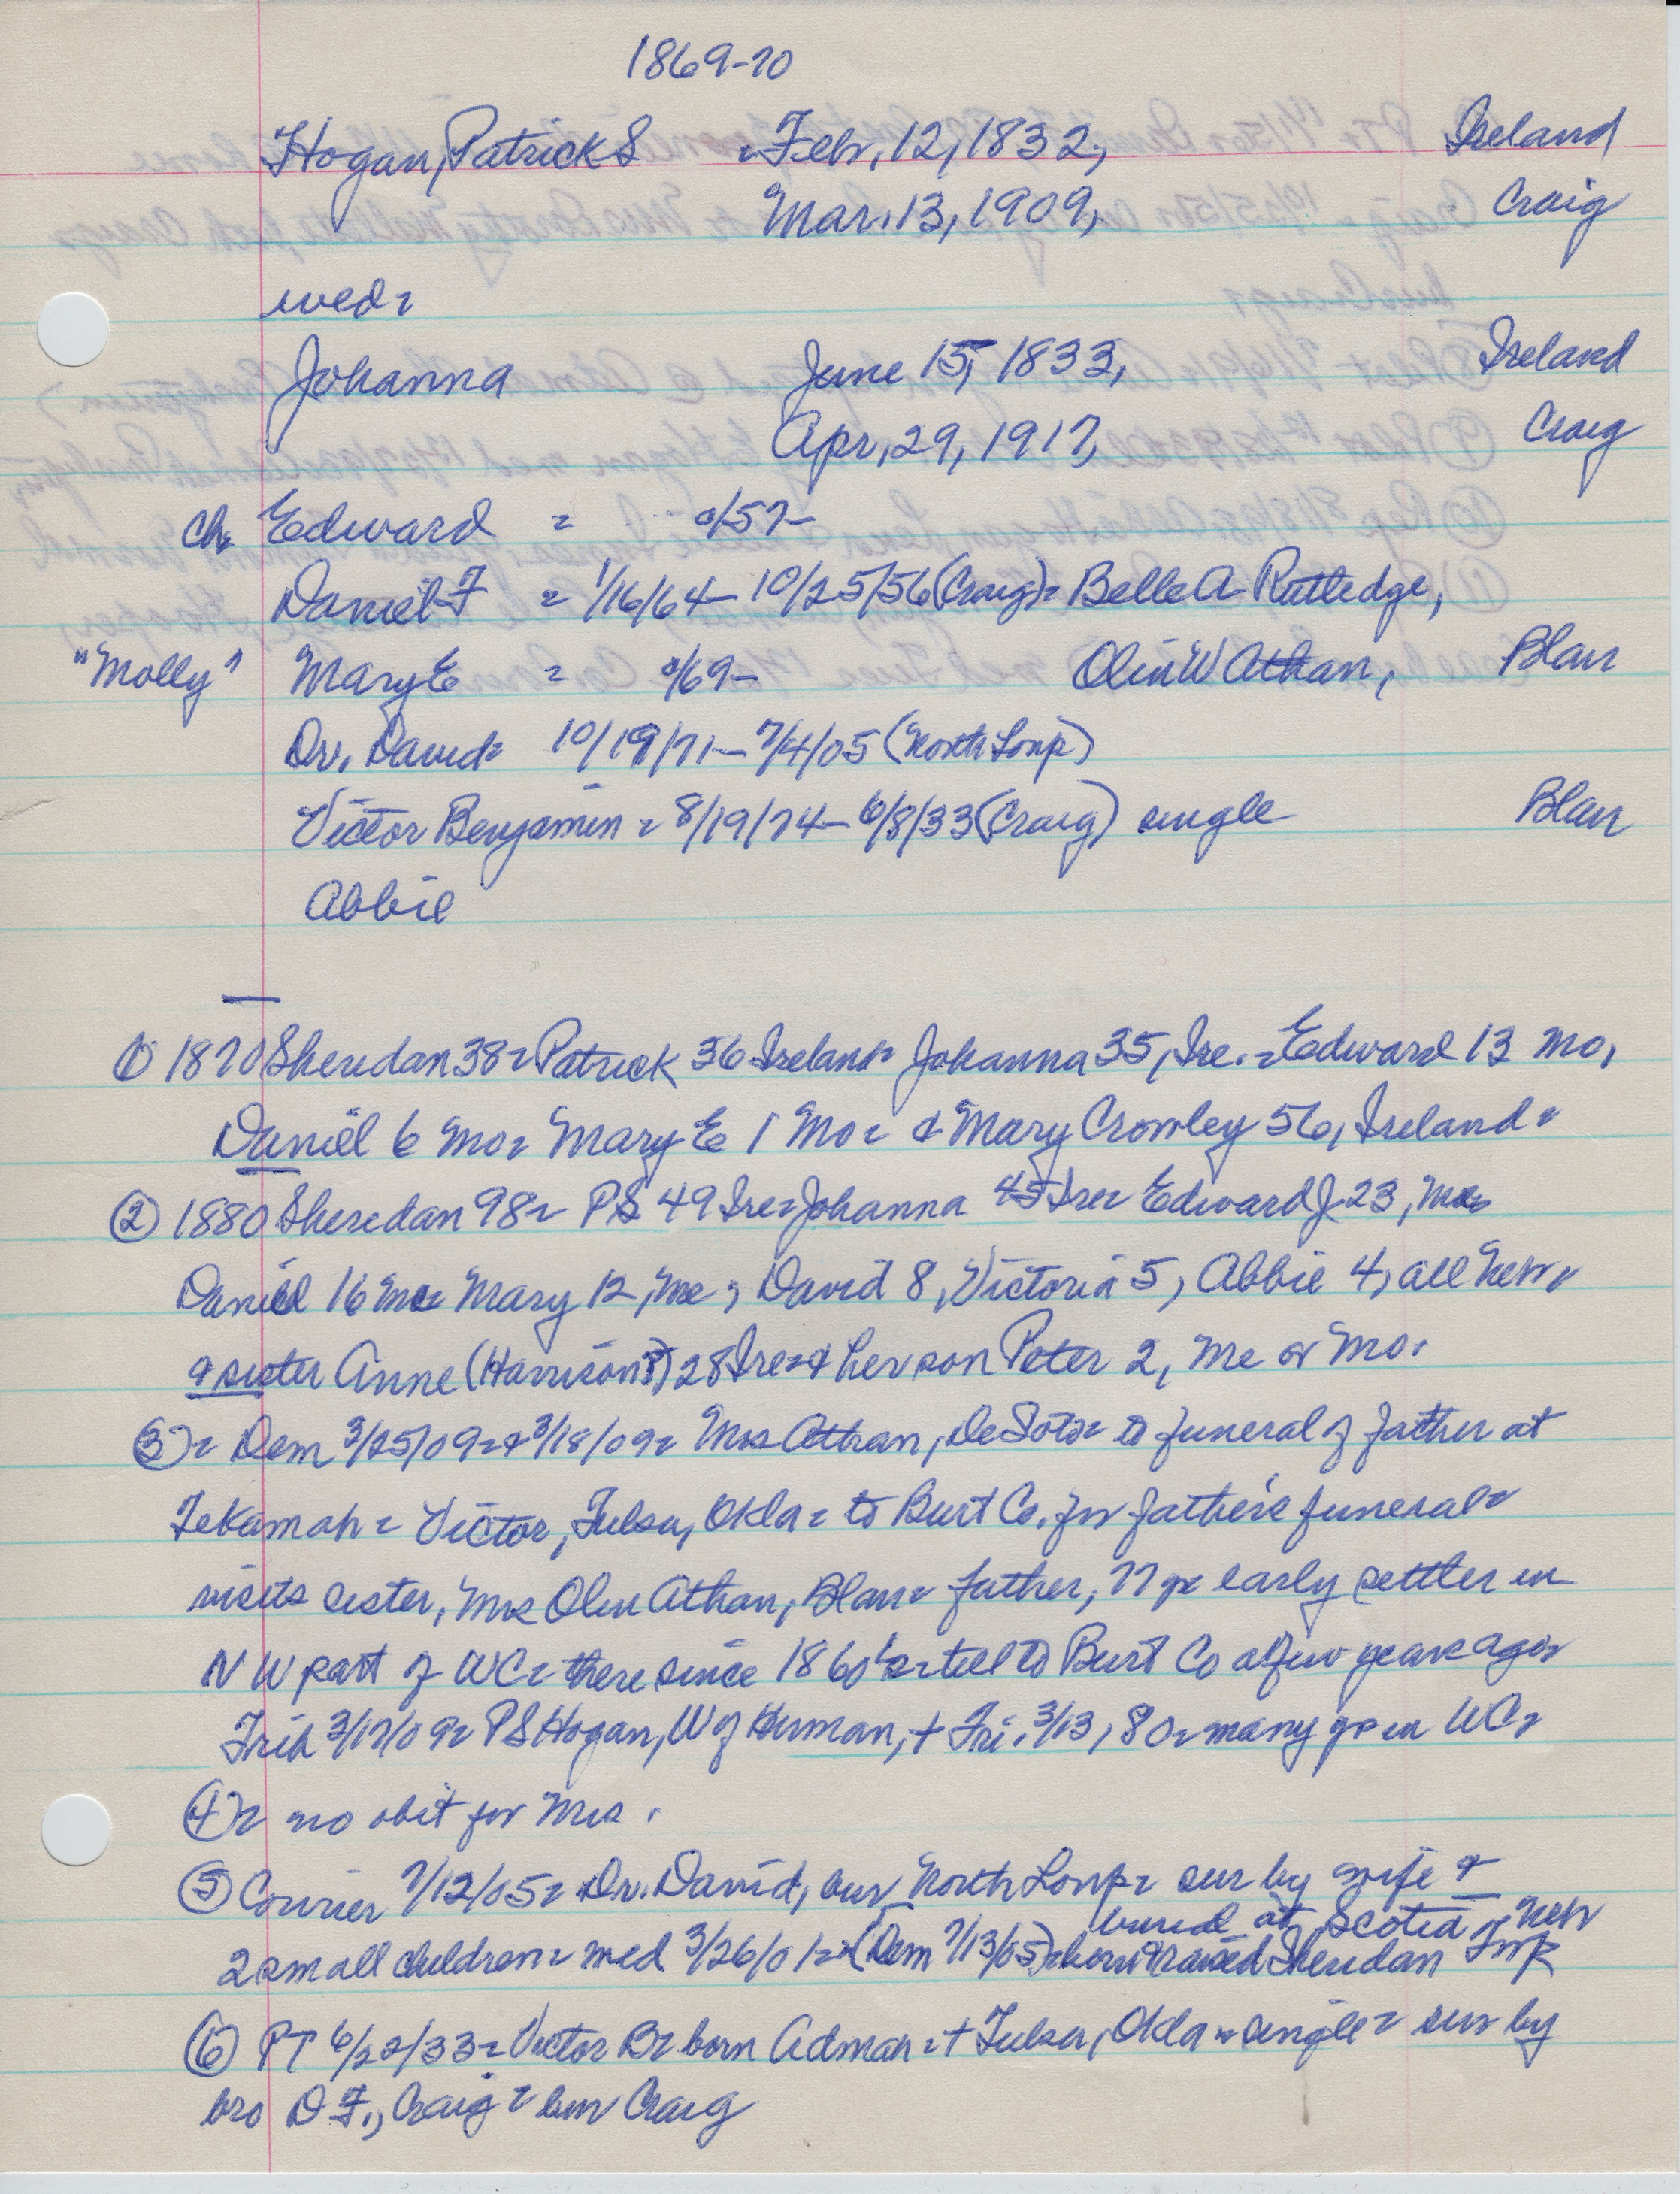 1869-70
Hogan, Patrick S = Febr, 12, 1832, Ireland
Mar. 13, 1909, Craig
wed =
Johanna June 15, 1833, Ireland
Apr, 29, 1917, Craig
Ch. Edward = 0/57-
Daniel F = 1/16/64 - 10/25/56 (Craig) = Belle A Rutledge,
"Molly" Mary E = 0/69- Olin W Athan, Blair
Dr. David = 10/19/71 - 7/4/05 (North Loup)
Victor Benjamin = 8/19/74 - 6/8/33 (Craig) single Blair
Abbie
① 1870 Sheridan 38 = Patrick 36 Ireland = Johanna 35, Ire. = Edward 13 Mo,
Daniel 6 Mo = Mary E 1 Mo = & Mary Crowley 56, Ireland =
② 1880 Sheridan 98 = PS 49 Ire = Johanna 45 Ire = Edward J 23, Me
Daniel 16 Me = Mary 12, Me; David 8, Victoria 5, Abbie 4, all Nebr,
& sister Anne (Harrison?) 28 Ire = & her son Peter 2, Me or Mo.
③ = Dem 3/25/09 = & 3/18/09 = Mrs Athan, DeSoto = to funeral of father at
Tekamah = Victor, Tulsa, Okla = to Burt Co. for father's funeral =
visits sister, Mrs Olin Athan, Blair = father, 77 yr early settler in
NW part of WC = there since 1860's = till to Burt Co a few years ago =
Trib 3/17/09 = PS Hogan, W of Herman, + Fri. 3/13, 80 = many yrs in WC =
④ = no obit for Mrs.
⑤ Courier 7/12/05 = Dr. David, bur North Loup = sur by wife &
buried at Scotia, Nebr
2 small children = med 3/26/01 = (Dem 7/13/05) = born & raised Sheridan Twp
⑥ PT 6/22/33 = Victor B = born Admah = + Tulsa, Okla = single = sur by
bro D F., Craig = bur Craig